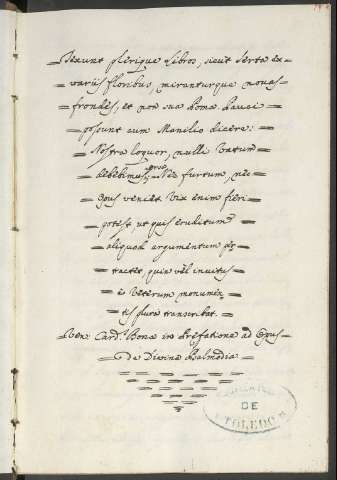 Texunt plerique libros, sicut serta ex
variis floribus, miranturque novas
frondes, et non sua Poma Pauci
possunt cum Manilio dicere.
Nostra loquor, nulli vatum
debebimus orsa; Nec furtum, nec
Opus veniet Vix enim fieri
potest ut quis eruditum
aliquod argumentum per
tractet, quin vel invitus
è Veterum monumen
tis plura transcribat.
Ven. Card. Bona in Prefatione ad Opus
De Divina Psalmodia
DE
TOLEDO